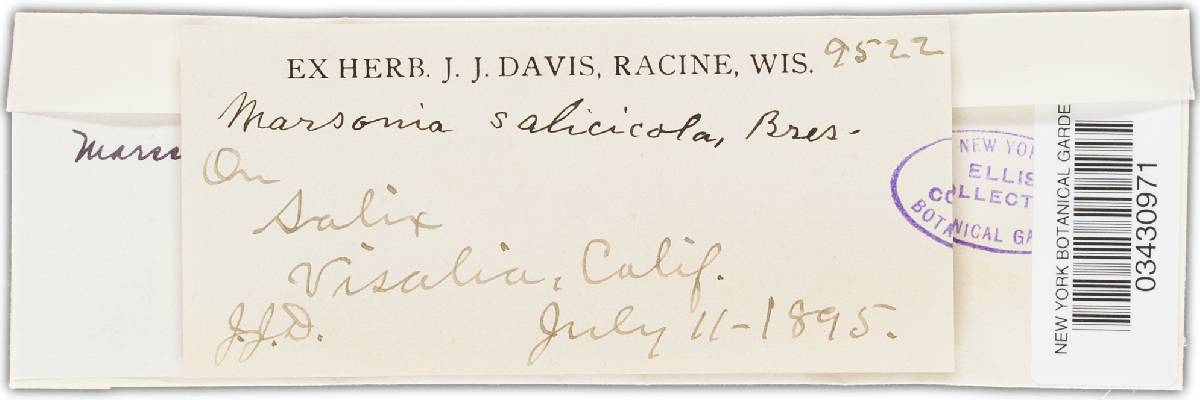 EX HERB. J. J. DAVIS, RACINE, WIS. 9522
Marsonia salicicola, Bres.
On
Salix
Visalia, Calif.
J.J.D. July 11-1895.
NEW YOR
ELLIS
COLLECT
BOTANICAL GA
NEW YORK BOTANICAL GARDE
03430971